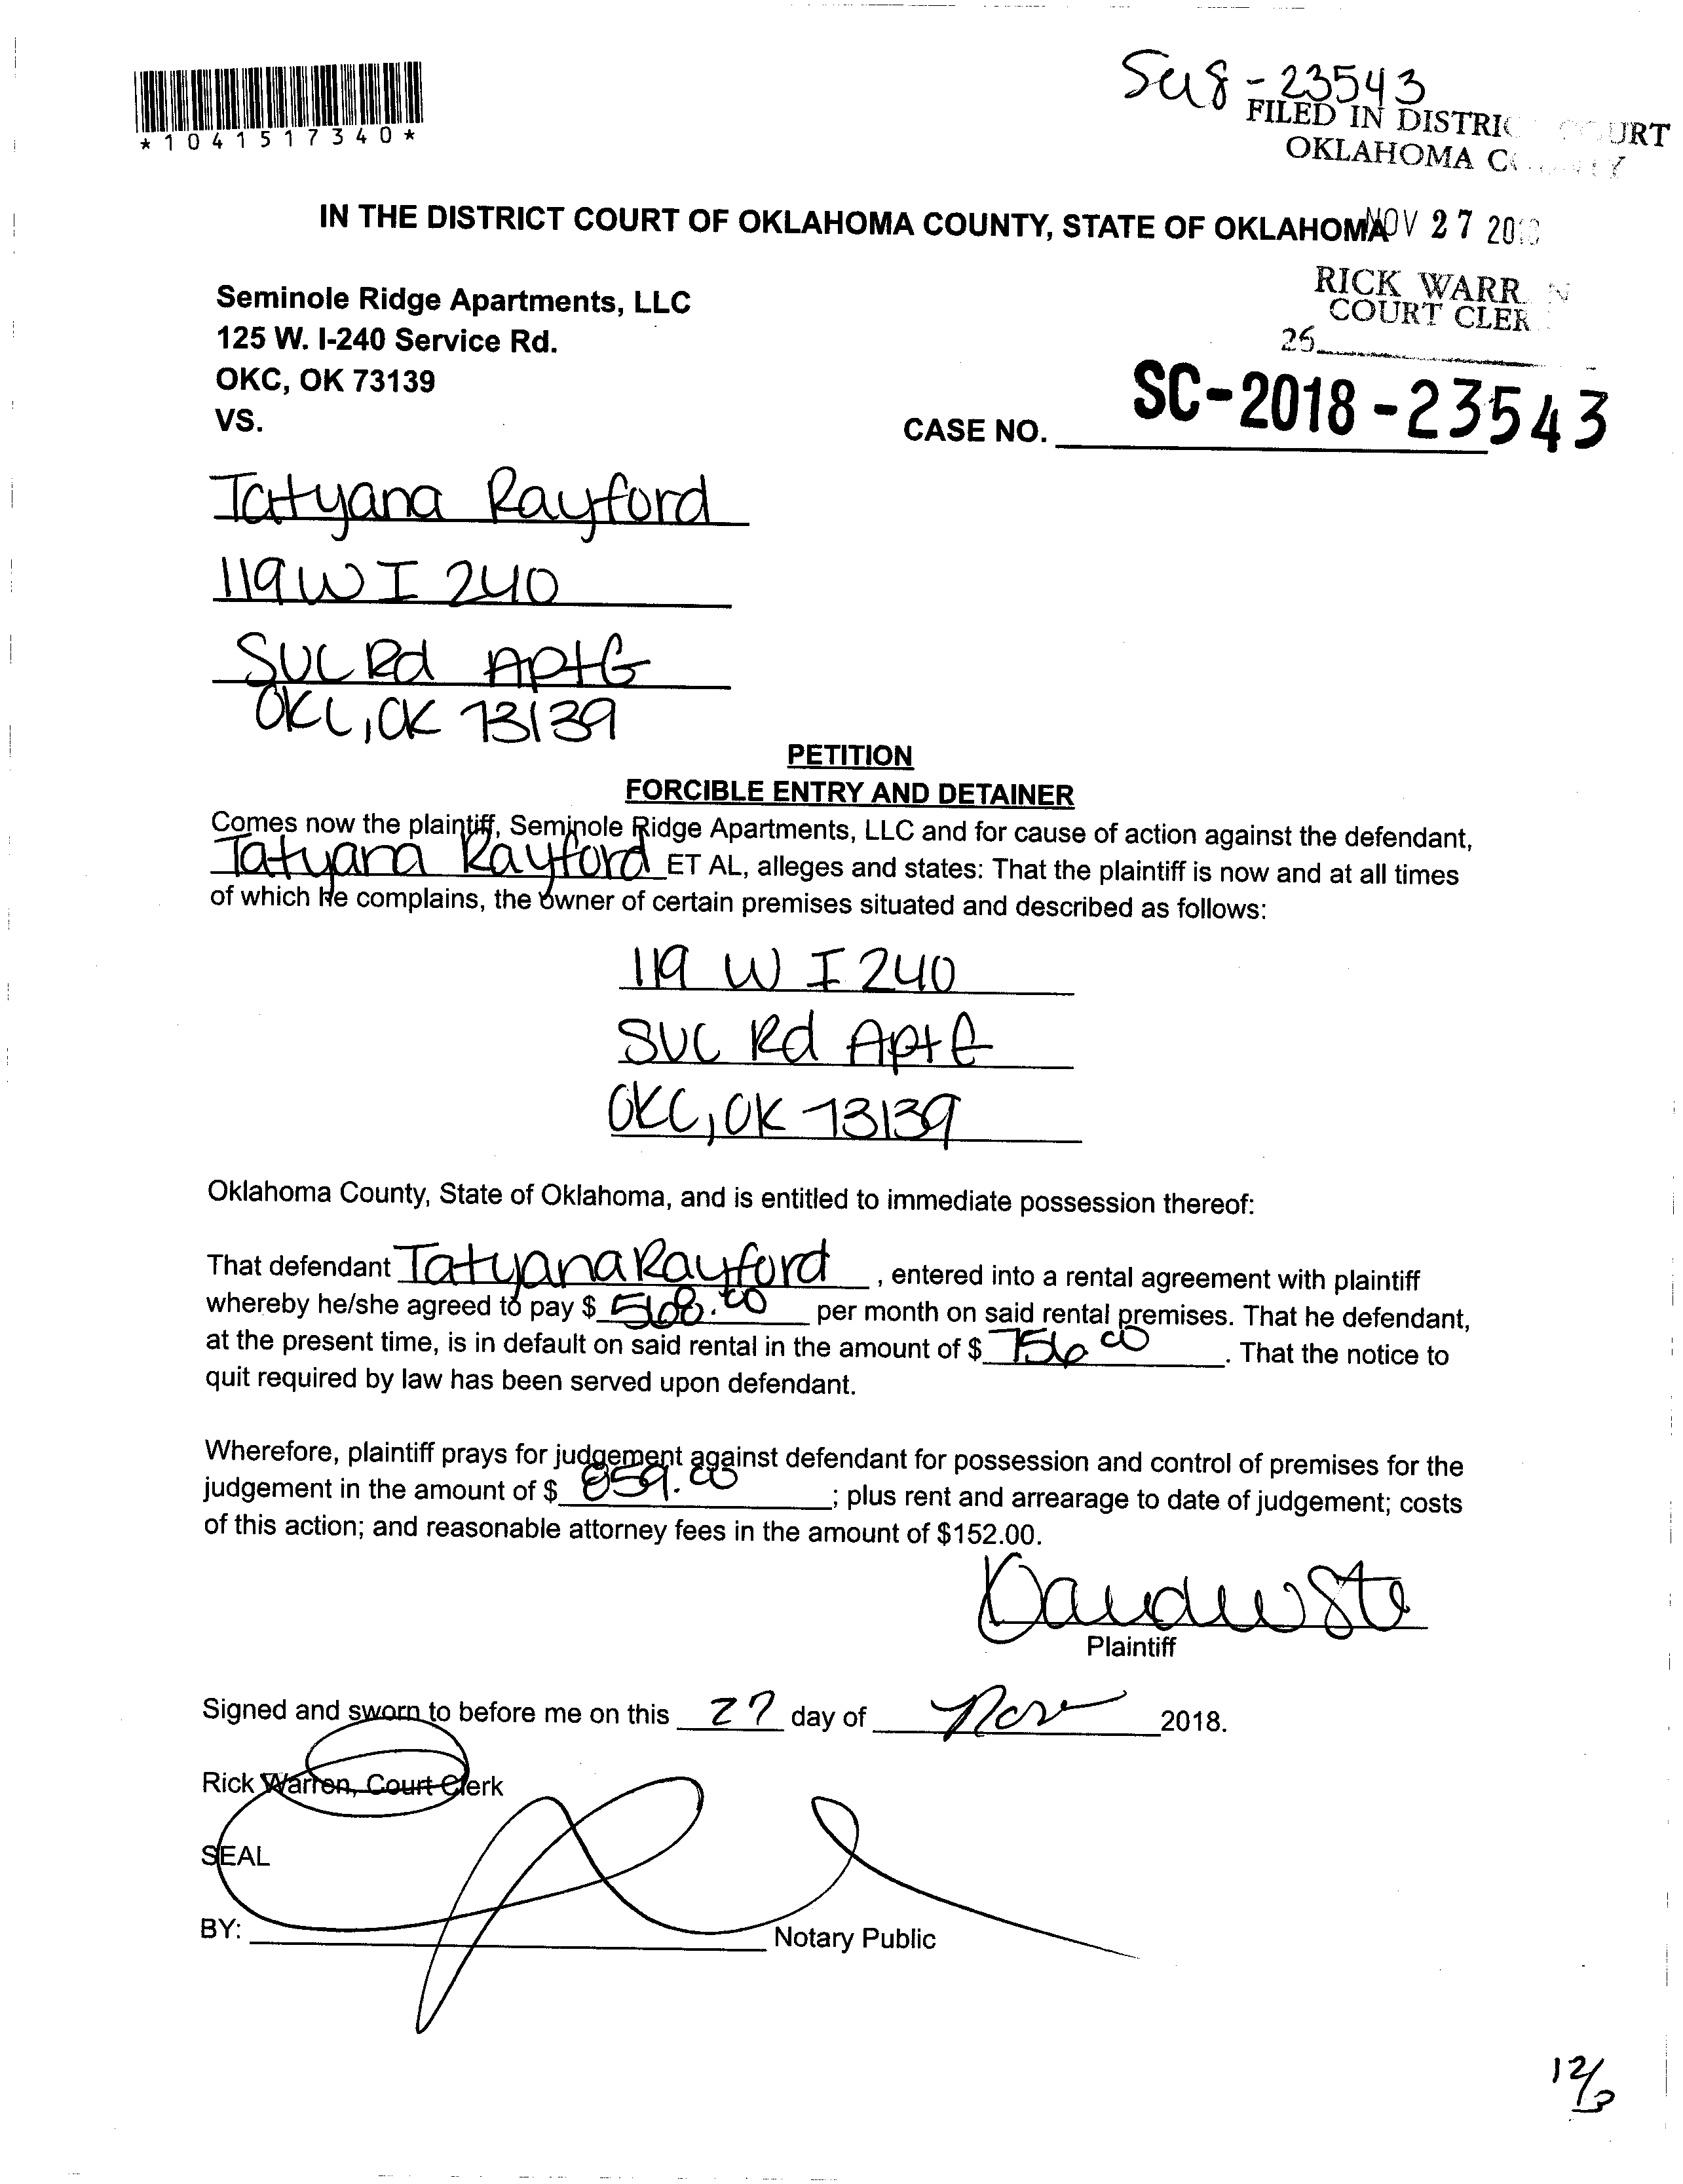 Sc18-23543
*1041517340*
FILED IN DISTRIC COURT
OKLAHOMA COUNTY
IN THE DISTRICT COURT OF OKLAHOMA COUNTY, STATE OF OKLAHOMA
NOV 27 2018
Seminole Ridge Apartments, LLC
RICK WARREN
125 W. I-240 Service Rd.
COURT CLERK
26
OKC, OK 73139
VS.
CASE NO. SC-2018-23543
Tatyana Rayford
119 W I 240
SVC Rd Apt G
OKC, OK 73139
PETITION
FORCIBLE ENTRY AND DETAINER
Comes now the plaintiff, Seminole Ridge Apartments, LLC and for cause of action against the defendant,
Tatyana Rayford ET AL, alleges and states: That the plaintiff is now and at all times
of which he complains, the owner of certain premises situated and described as follows:
119 W I 240
SVC Rd Apt G
OKC, OK 73139
Oklahoma County, State of Oklahoma, and is entitled to immediate possession thereof:
That defendant Tatyana Rayford, entered into a rental agreement with plaintiff
whereby he/she agreed to pay $ 568.00 per month on said rental premises. That he defendant,
at the present time, is in default on said rental in the amount of $ 756 00. That the notice to
quit required by law has been served upon defendant.
Wherefore, plaintiff prays for judgement against defendant for possession and control of premises for the
judgement in the amount of $ 859.00; plus rent and arrearage to date of judgement; costs
of this action; and reasonable attorney fees in the amount of $152.00.
Plaintiff
Signed and sworn to before me on this 27 day of Nov 2018.
Rick Warren, Court Clerk
SEAL
BY: Notary Public
12/